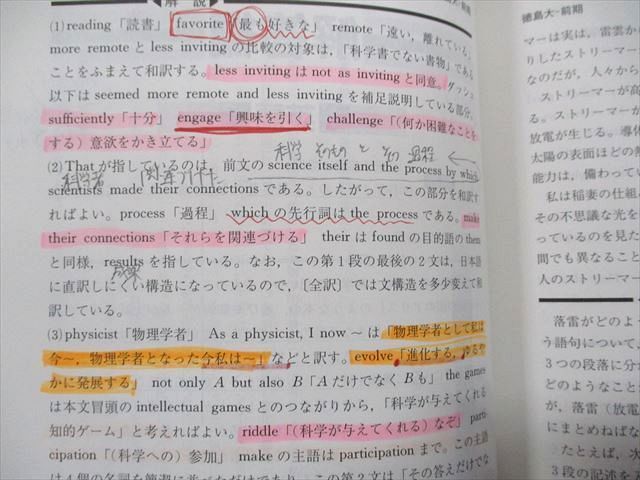 解説
(1) reading「読書」 favorite「最も好きな」 remote「遠い，離れている」
more remote と less inviting の比較の対象は，「科学書でない書物」である
ことをふまえて和訳する。less inviting は not as inviting と同意。ダッシュ
以下は seemed more remote and less inviting を補足説明している部分。
sufficiently「十分」 engage「興味を引く」 challenge「(何か困難なことを
する) 意欲をかき立てる」
科学 そのもの と その 過程
(2) That が指しているのは，前文の science itself and the process by which
科学者 関連づけ
scientists made their connections である。したがって，この部分を和訳す
ればよい。process「過程」 which の先行詞は the process である。make
their connections「それらを関連づける」 their は found の目的語の them
と同様，results を指している。なお，この第1段の最後の2文は，日本語
成果
に直訳しにくい構造になっているので，〔全訳〕では文構造を多少変えて和
訳している。
(3) physicist「物理学者」 As a physicist, I now ～ は「物理学者として私は
今～，物理学者となった今私は～」などと訳す。evolve「進化する，ゆるや
かに発展する」 not only A but also B「A だけでなく B も」 the games
は本文冒頭の intellectual games とのつながりから，「科学が与えてくれる
知的ゲーム」と考えればよい。riddle「(科学が与えてくれる) なぞ」 parti-
cipation「(科学への) 参加」 make の主語は participation まで。この主語
は4個の名詞を簡潔に並べただけであり，この第2文は「その答えだけでな
徳島大-前期
マーは実は，雷雲か
りしたストリーマー
なのだが，人々から
ストリーマーが高
る。ストリーマー
放電が生じる。導
太陽の表面ほどの
能力は，備わってい
私は稲妻の仕組
その不思議な光を
っているのを見た
間でも異なること
人のストリーマー
落雷がどのよう
う語句について，
3つの段落に分か
どのようなこと
が，落雷（放電
にまとめねばな
たとえば，次
3段の記述を